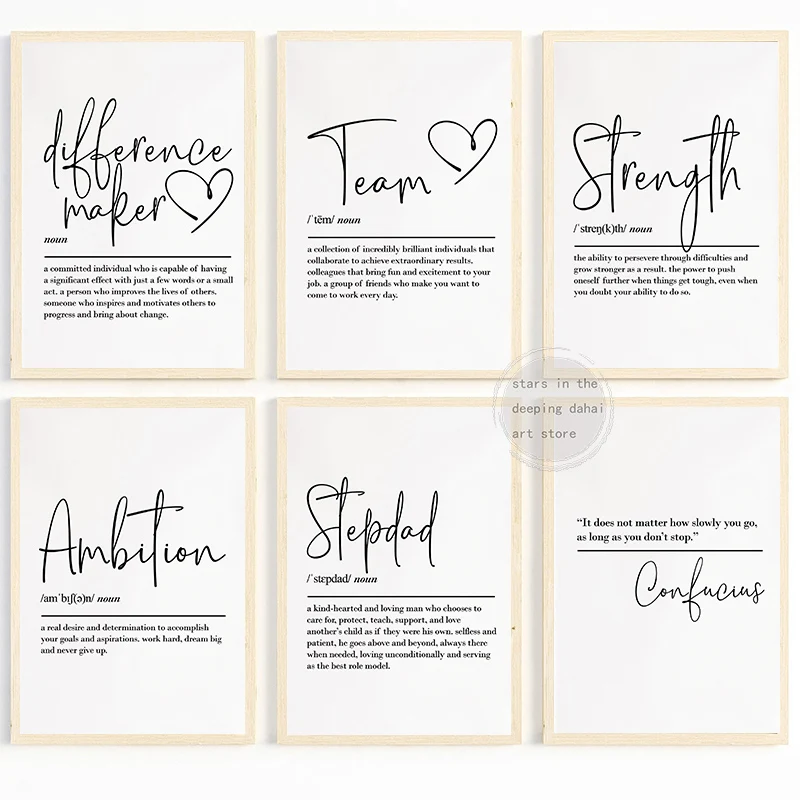 difference
maker
noun
a committed individual who is capable of having
a significant effect with just a few words or a small
act. a person who improves the lives of others.
someone who inspires and motivates others to
progress and bring about change.
Team
/ˈtēm/ noun
a collection of incredibly brilliant individuals that
collaborate to achieve extraordinary results.
colleagues that bring fun and excitement to your
job. a group of friends who make you want to
come to work every day.
Strength
/ˈstreŋ(k)th/ noun
the ability to persevere through difficulties and
grow stronger as a result. the power to push
oneself further when things get tough, even when
you doubt your ability to do so.
stars in the
deeping dahai
art store
Ambition
/amˈbɪʃ(ə)n/ noun
a real desire and determination to accomplish
your goals and aspirations. work hard, dream big
and never give up.
Stepdad
/ˈstɛpdad/ noun
a kind-hearted and loving man who chooses to
care for, protect, teach, support, and love
another's child as if they were his own. selfless and
patient, he goes above and beyond, always there
when needed, loving unconditionally and serving
as the best role model.
“It does not matter how slowly you go,
as long as you don’t stop.”
Confucius